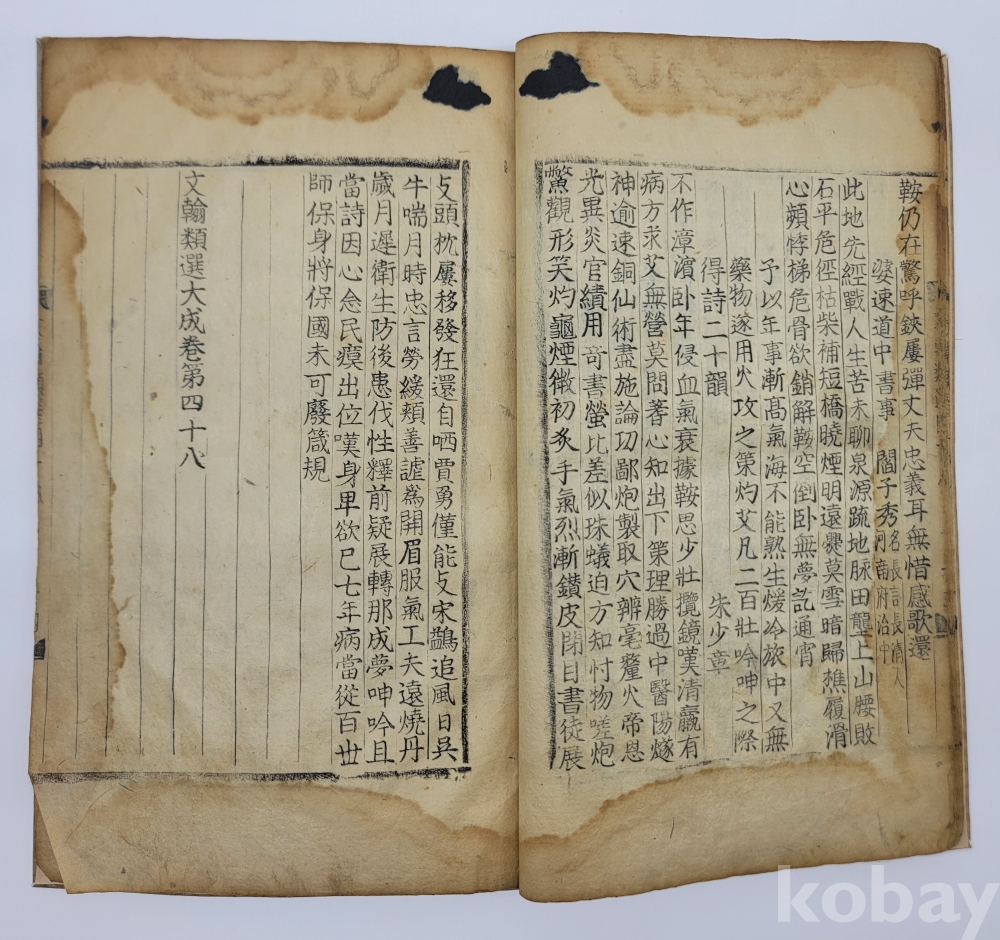 鞍仍在驚呼鋏屢彈丈夫忠義耳無惜感歌還
婆速道中書事 閻子秀名長言長清人河南府治中
此地先經戰人生苦未聊泉源疏地脉田壟上山腰敗
石平危徑枯柴補短橋曉煙明遠爨莫雪暗歸樵履滑
心頻悸梯危骨欲銷解鞍空倒卧無夢託通宵
予以年事漸髙氣海不能熟生煖冷旅中又無
藥物遂用火攻之策灼艾凡二百壯吟呻之際
得詩二十韻 朱少章
不作漳濱卧年侵血氣衰據鞍思少壯攬鏡嘆清羸有
病方求艾無營莫問蓍心知出下策理勝過中醫陽燧
神逾速銅仙術盡施論功鄙炮製取穴辨毫釐火帝恩
光異炎官績用奇書螢比差似珠蟻迫方知忖物嗟炮
鱉觀形笑灼龜煙微初炙手氣烈漸鑽皮閉目書徒展
攴頭枕屢移發狂還自哂賈勇僅能攴宋鷁追風日吳
牛喘月時忠言勞緩頰善謔爲開眉服氣工夫遠燒丹
歲月遲衛生防後患伐性釋前疑展轉那成夢呻吟且
當詩因心念民瘼出位嘆身卑欲已七年病當從百世
師保身將保國未可廢箴規
文翰類選大成卷第四十八
kobay